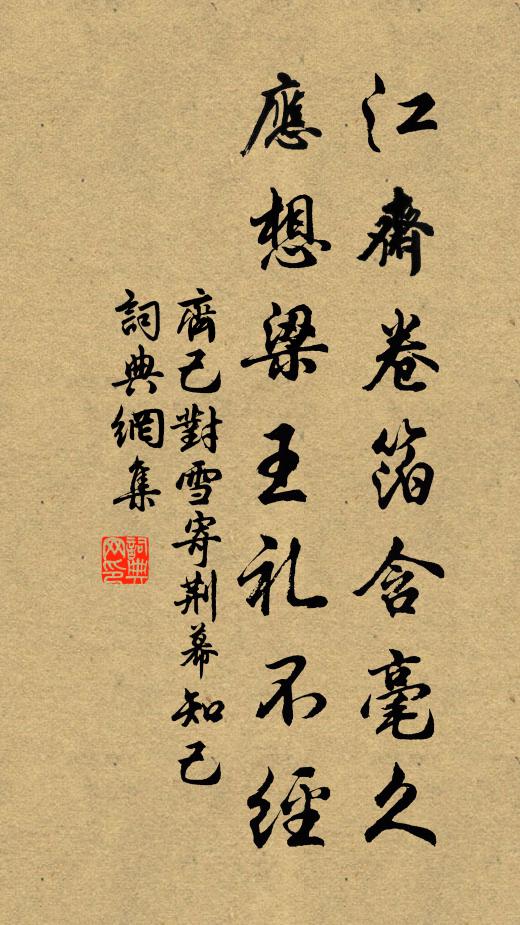 江齋卷箔含毫久
應想梁王礼不經
齊己對雪寄荆幕知己
詞典網集
詞典网印